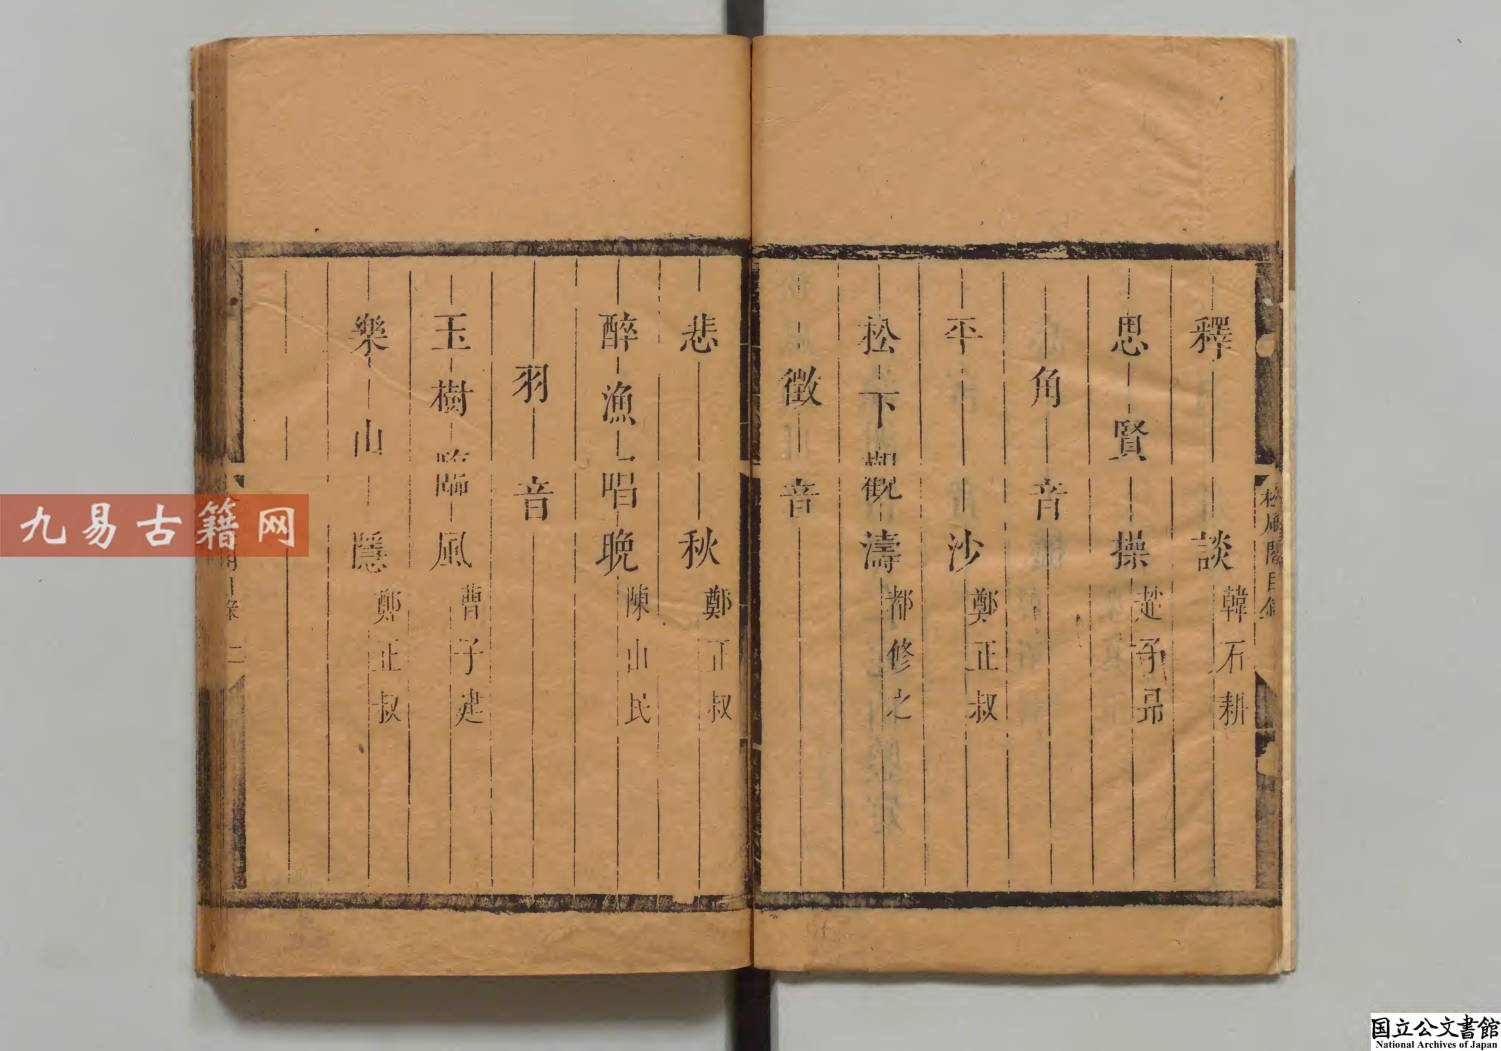 釋談 韓石耕
思賢操 趙子昂
角音
平沙 鄭正叔
松下觀濤 都修之
徵音
松風閣目錄
悲秋 鄭正叔
醉漁唱晚 陳山民
羽音
玉樹臨風 曹子建
樂山隱 鄭正叔
目錄 二
九易古籍网
国立公文書館
National Archives of Japan